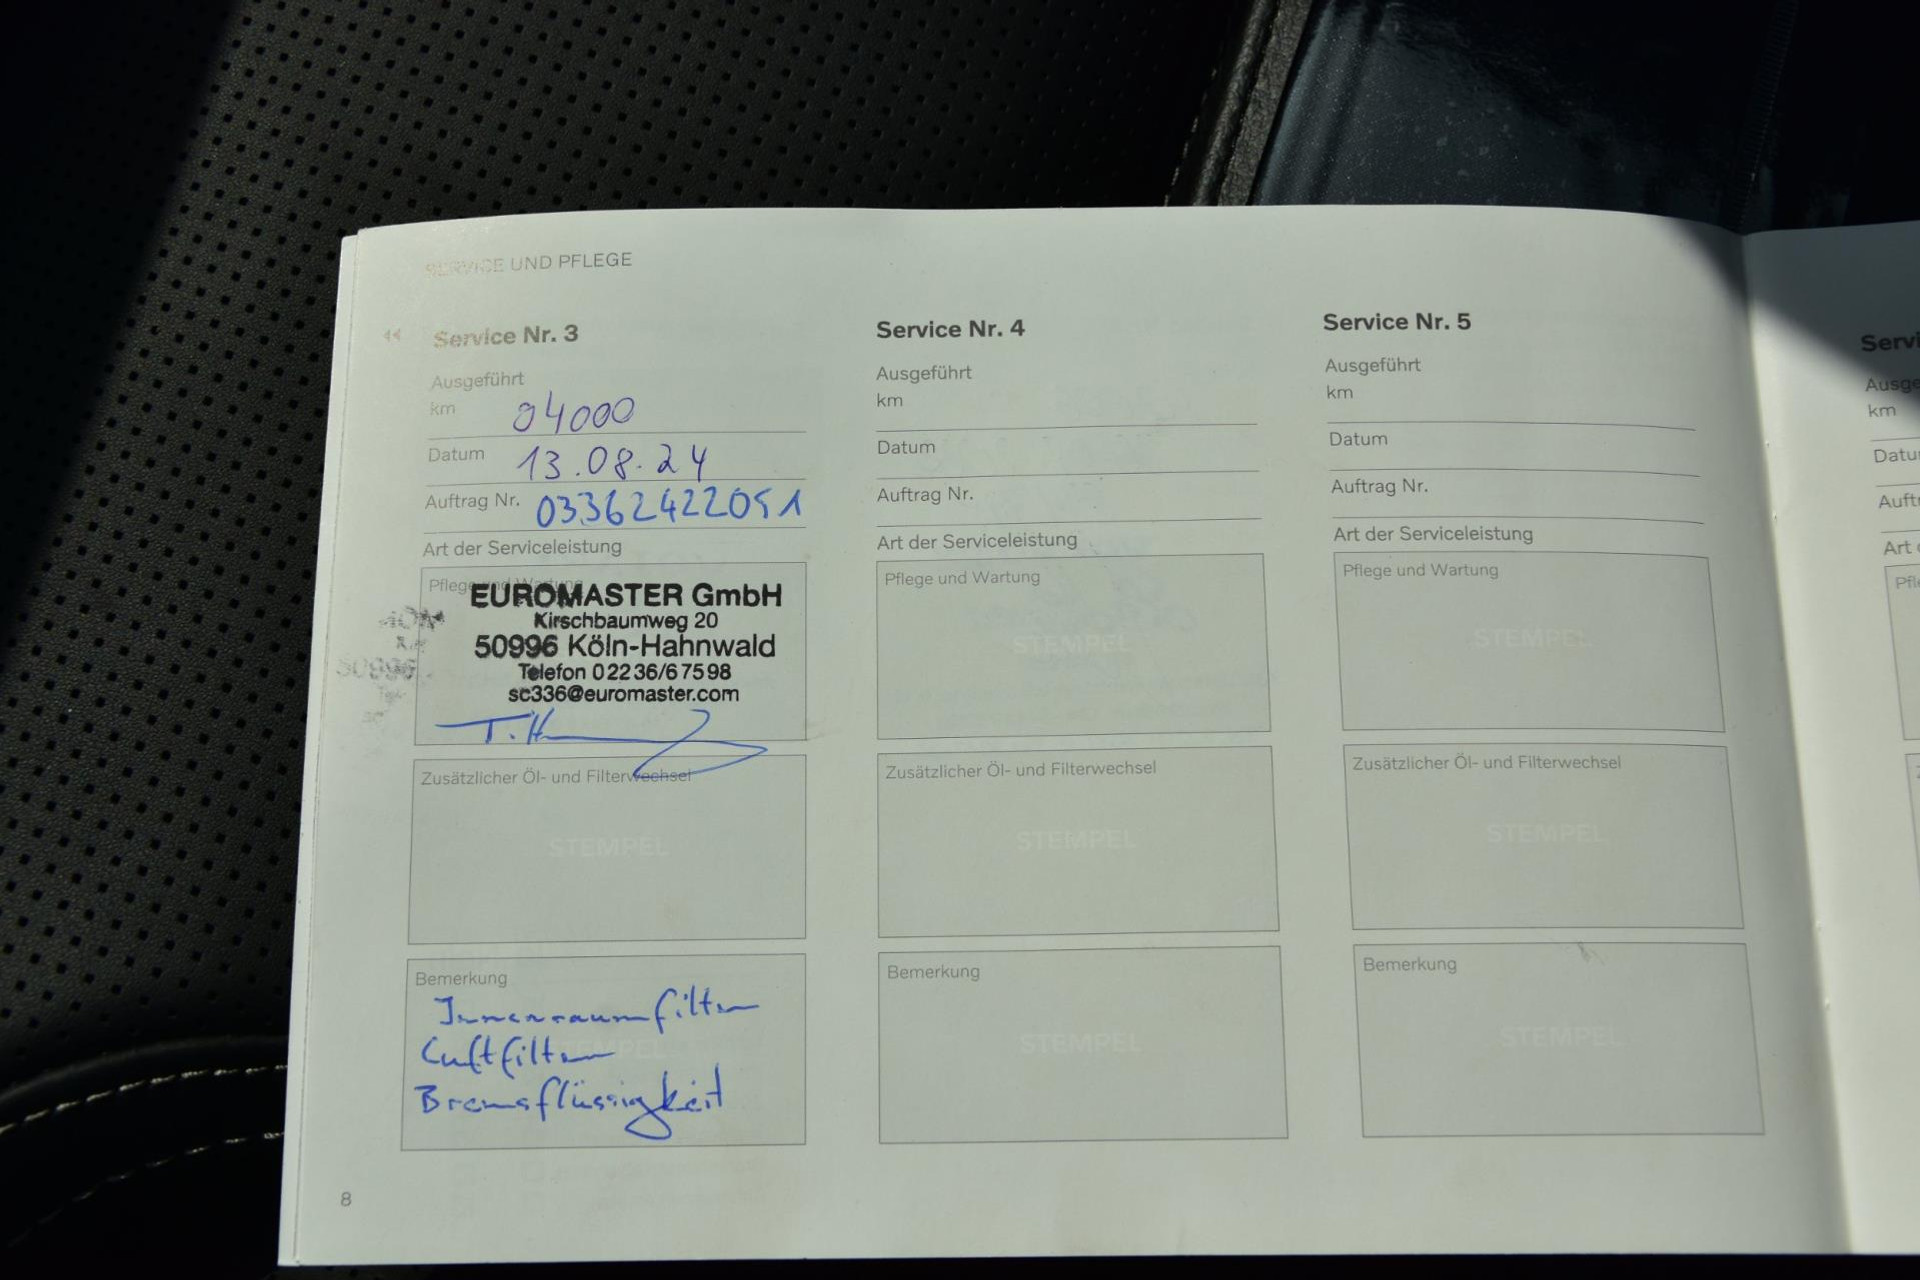 SERVICE UND PFLEGE
Service Nr. 3
Ausgeführt
km 04000
Datum 13.08.24
Auftrag Nr. 03362422051
Art der Serviceleistung
Pflege und Wartung
EUROMASTER GmbH
Kirschbaumweg 20
50996 Köln-Hahnwald
Telefon 0 22 36/6 75 98
sc336@euromaster.com
Zusätzlicher Öl- und Filterwechsel
STEMPEL
Bemerkung
Innenraumfilter
Luftfilter
Bremsflüssigkeit
8
Service Nr. 4
Ausgeführt
km
Datum
Auftrag Nr.
Art der Serviceleistung
Pflege und Wartung
STEMPEL
Zusätzlicher Öl- und Filterwechsel
STEMPEL
Bemerkung
STEMPEL
Service Nr. 5
Ausgeführt
km
Datum
Auftrag Nr.
Art der Serviceleistung
Pflege und Wartung
STEMPEL
Zusätzlicher Öl- und Filterwechsel
STEMPEL
Bemerkung
STEMPEL
km